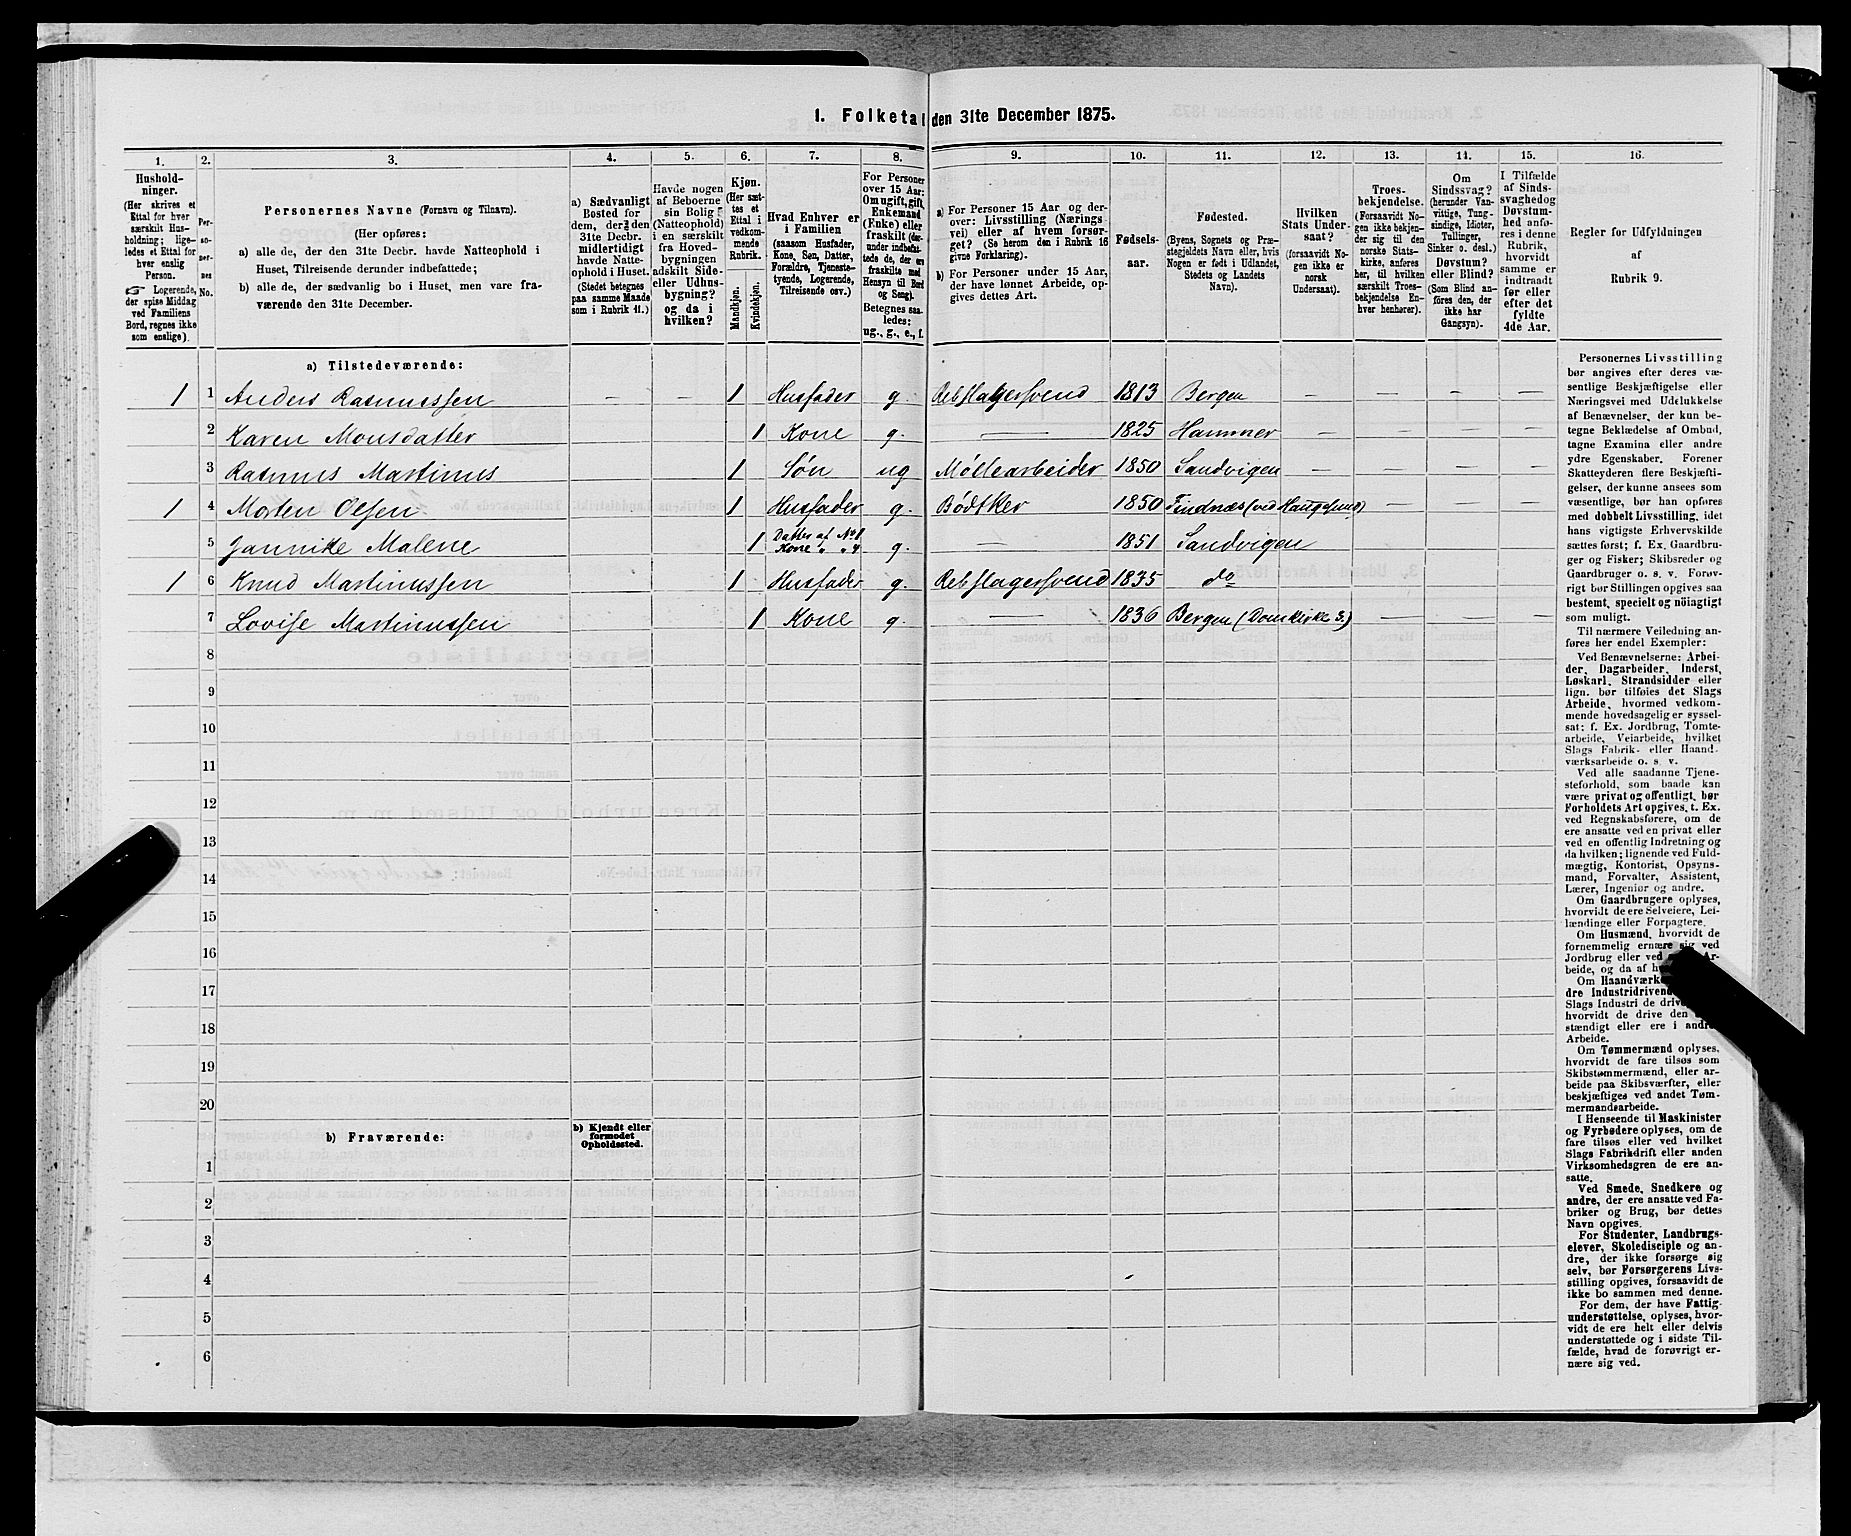 1. Folketal den 31te December 1875.
1. 2. 3. 4. 5. 6. 7. 8. 9. 10. 11. 12. 13. 14. 15. 16.
Hushold-
ninger.
(Her skrives et
Ettal for hver
særskilt Hus-
holdning; lige-
ledes et Ettal for
hver enslig
Person.
☞ Logerende,
der spise Middag
ved Familiens
Bord, regnes ikke
som enslige).
Per-
so-
ner-
nes
No.
Personernes Navne (Fornavn og Tilnavn).
(Her opføres:
a) alle de, der den 31te Decbr. havde Natteophold i
Huset, Tilreisende derunder indbefattede;
b) alle de, der sædvanlig bo i Huset, men vare fra-
værende den 31te December.
a) Sædvanligt
Bosted for
dem, der den
31te Decbr.
midlertidigt
havde Natte-
ophold i Huset.
(Stedet betegnes
paa samme Maade
som i Rubrik 11.)
Havde nogen
af Beboerne
sin Bolig
(Natteophold)
i en særskilt
fra Hoved-
bygningen
adskilt Side-
eller Udhus-
bygning?
og da i
hvilken?
Kjøn.
(Her sæt-
tes et
Ettal i
vedkom-
mende
Rubrik.
Mandkjøn.
Kvindekjøn.
Hvad Enhver er
i Familien
(saasom Husfader,
Kone, Søn, Datter,
Forældre, Tjeneste-
tyende, Logerende,
Tilreisende osv.)
For Personer
over 15 Aar:
Om ugift, gift,
Enkemand
(Enke) eller
fraskilt (der-
under indbefat-
tede de, der ere
fraskilte med
Hensyn til Bord
og Seng).
Betegnes saa-
ledes:
ug., g., e., f.
a) For Personer 15 Aar og der-
over: Livsstilling (Nærings
vei) eller af hvem forsør-
get? (Se herom den i Rubrik 16
givne Forklaring).
b) For Personer under 15 Aar,
der have lønnet Arbeide, op-
gives dettes Art.
Fødsels-
aar.
Fødested.
(Byens, Sognets og Præ-
stegjeldets Navn eller, hvis
Nogen er født i Udlandet,
Stedets og Landets
Navn).
Hvilken
Stats Under-
saat?
(forsaavidt No-
gen ikke er
norsk
Undersaat).
Troes-
bekjendelse.
(Forsaavidt No-
gen ikke bekjen-
der sig til den
norske Stats-
kirke, anføres
her, til hvilken
særskilt Troes-
bekjendelse En-
hver henhører).
Om
Sindssvag?
(herunder Van-
vittige, Tung-
sindige, Idioter,
Tullinger,
Sinker o. desl.)
Døvstum?
eller Blind?
(Som Blind an-
føres den, der
ikke har
Gangsyn).
I Tilfælde
af Sinds-
svaghed og
Døvstum-
hed anfø-
res i denne
Rubrik,
hvorvidt
samme er
indtraadt
før eller
efter det
fyldte
4de Aar.
Regler for Udfyldningen
af
Rubrik 9.
a) Tilstedeværende:
1 1 Anders Rasmussen — — 1 Husfader g. Rebslagersvend 1813 Bergen — — — —
2 Karen Monsdatter 1 Kone g. — 1825 Hammer — — — —
3 Rasmus Martinus 1 Søn ug Møllearbeider 1850 Sandvigen — — — —
1 4 Morten Olsen 1 Husfader g. Bødtker 1850 Findnæs (ved Haugesund) — — —
5 Jannike Malene 1 Datter af No 1 Kone " " 4 g. — 1851 Sandvigen — — —
1 6 Knud Martinussen 1 Husfader g. Rebslagersvend 1835 do
7 Lovise Martinussen 1 Kone g. — 1836 Bergen (Domkirke S.) — — —
8
9
10
11
12
13
14
15
16
17
18
19
20
b) Fraværende:
b) Kjendt eller
formodet
Opholdssted.
1
2
3
4
5
6
Personernes Livsstilling
bør angives efter deres væ-
sentlige Beskjæftigelse eller
Næringsvei med Udelukkelse
af Benævnelser, der kun be-
tegne Beklædelse af Ombud,
tagne Examina eller andre
ydre Egenskaber. Forener
Skatteyderen flere Beskjæfti-
gelser, der kunne ansees som
væsentlige, bør han opføres
med dobbelt Livsstilling, idet
hans vigtigste Erhvervskilde
sættes først; f. Ex. Gaardbru-
ger og Fisker; Skibsreder og
Gaardbruger o. s. v. Forøv-
rigt bør Stillingen opgives saa
bestemt, specielt og nöiagtigt
som muligt.
Til nærmere Veiledning an-
føres her endel Exempler:
Ved Benævnelserne: Arbei-
der, Dagarbeider, Inderst,
Løskarl, Strandsidder eller
lign. bør tilføies det Slags
Arbeide, hvormed vedkom-
mende hovedsagelig er syssel-
sat: f. Ex. Jordbrug, Tomte-
arbeide, Veiarbeide, hvilket
Slags Fabrik- eller Haand-
værksarbeide o. s. v.
Ved alle saadanne Tjene-
steforhold, som baade kan
være privat og offentligt, bør
Forholdets Art opgives, t. Ex.
ved Regnskabsførere, om de
ere ansatte ved en privat eller
ved en offentlig Indretning og
da hvilken; lignende ved Fuld-
mægtig, Kontorist, Opsyns-
mand, Forvalter, Assistent,
Lærer, Ingeniør og andre.
Om Gaardbrugere oplyses,
hvorvidt de ere Selveiere, Lei-
lændinge eller Forpagtere.
Om Husmænd, hvorvidt de
fornemmelig ernære sig ved
Jordbrug eller ved Ar-
beide, og da af
Om Haandværke
dre Industridrivend
Slags Industri de drive
hvorvidt de drive den
stændigt eller ere i andr
Arbeide.
Om Tømmermænd oplyses,
hvorvidt de fare tilsøs som
Skibstømmermænd, eller ar-
beide paa Skibsværfter, eller
beskjæftiges ved andet Tøm-
mermandsarbeide.
I Henseende til Maskinister
og Fyrbødere oplyses, om de
fare tilsøs eller ved hvilket
Slags Fabrikdrift eller anden
Virksomhedsgren de ere an-
satte.
Ved Smede, Snedkere og
andre, der ere ansatte ved Fa-
briker og Brug, bør dettes
Navn opgives.
For Studenter, Landbrugs-
elever, Skoledisciple og an-
dre, der ikke forsørge sig
selv, bør Forsørgerens Livs-
stilling opgives, forsaavidt de
ikke bo sammen med denne.
For dem, der have Fattig-
understøttelse, oplyses, hvor-
vidt de ere helt eller delvis
understøttede og i sidste Til-
fælde, hvad de forøvrigt er-
nære sig ved.